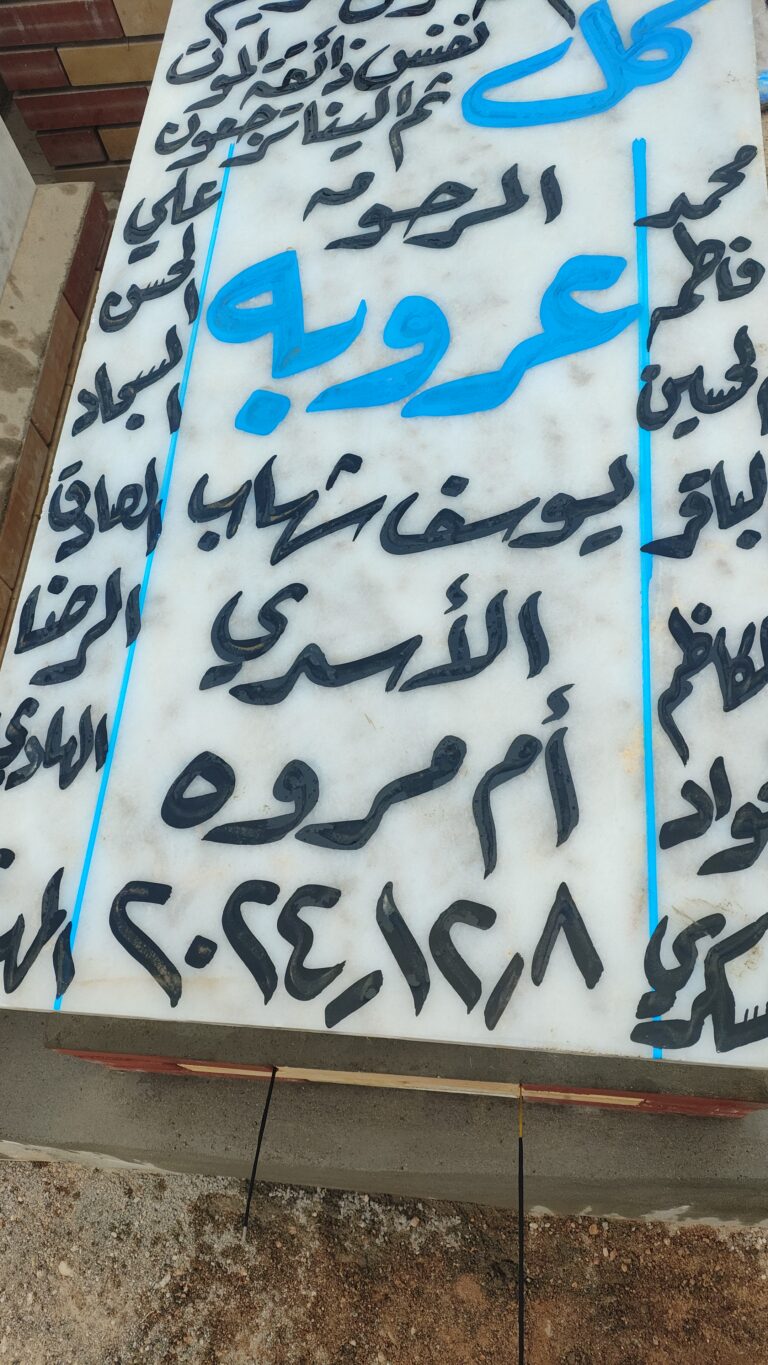 كل
نفس ذائقة الموت
ثم الينا ترجعون
المرحومه
عروبه
يوسف شهاب
الأسدي
أم مروه
٢٠٢٤/١٢/٨
محمد
فاطمه
الحسين
الباقر
الكاظم
علي
الحسن
السجاد
الصادق
الرضا
الهادي